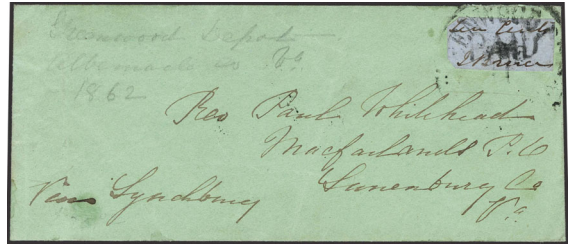 Greenwood Depot
Albemarle Co Va
1862
Ten Cents
PAID
Rev Paul Whitehead
Macfarlands P.O
Lunenburg Co
Va
Via Lynchburg